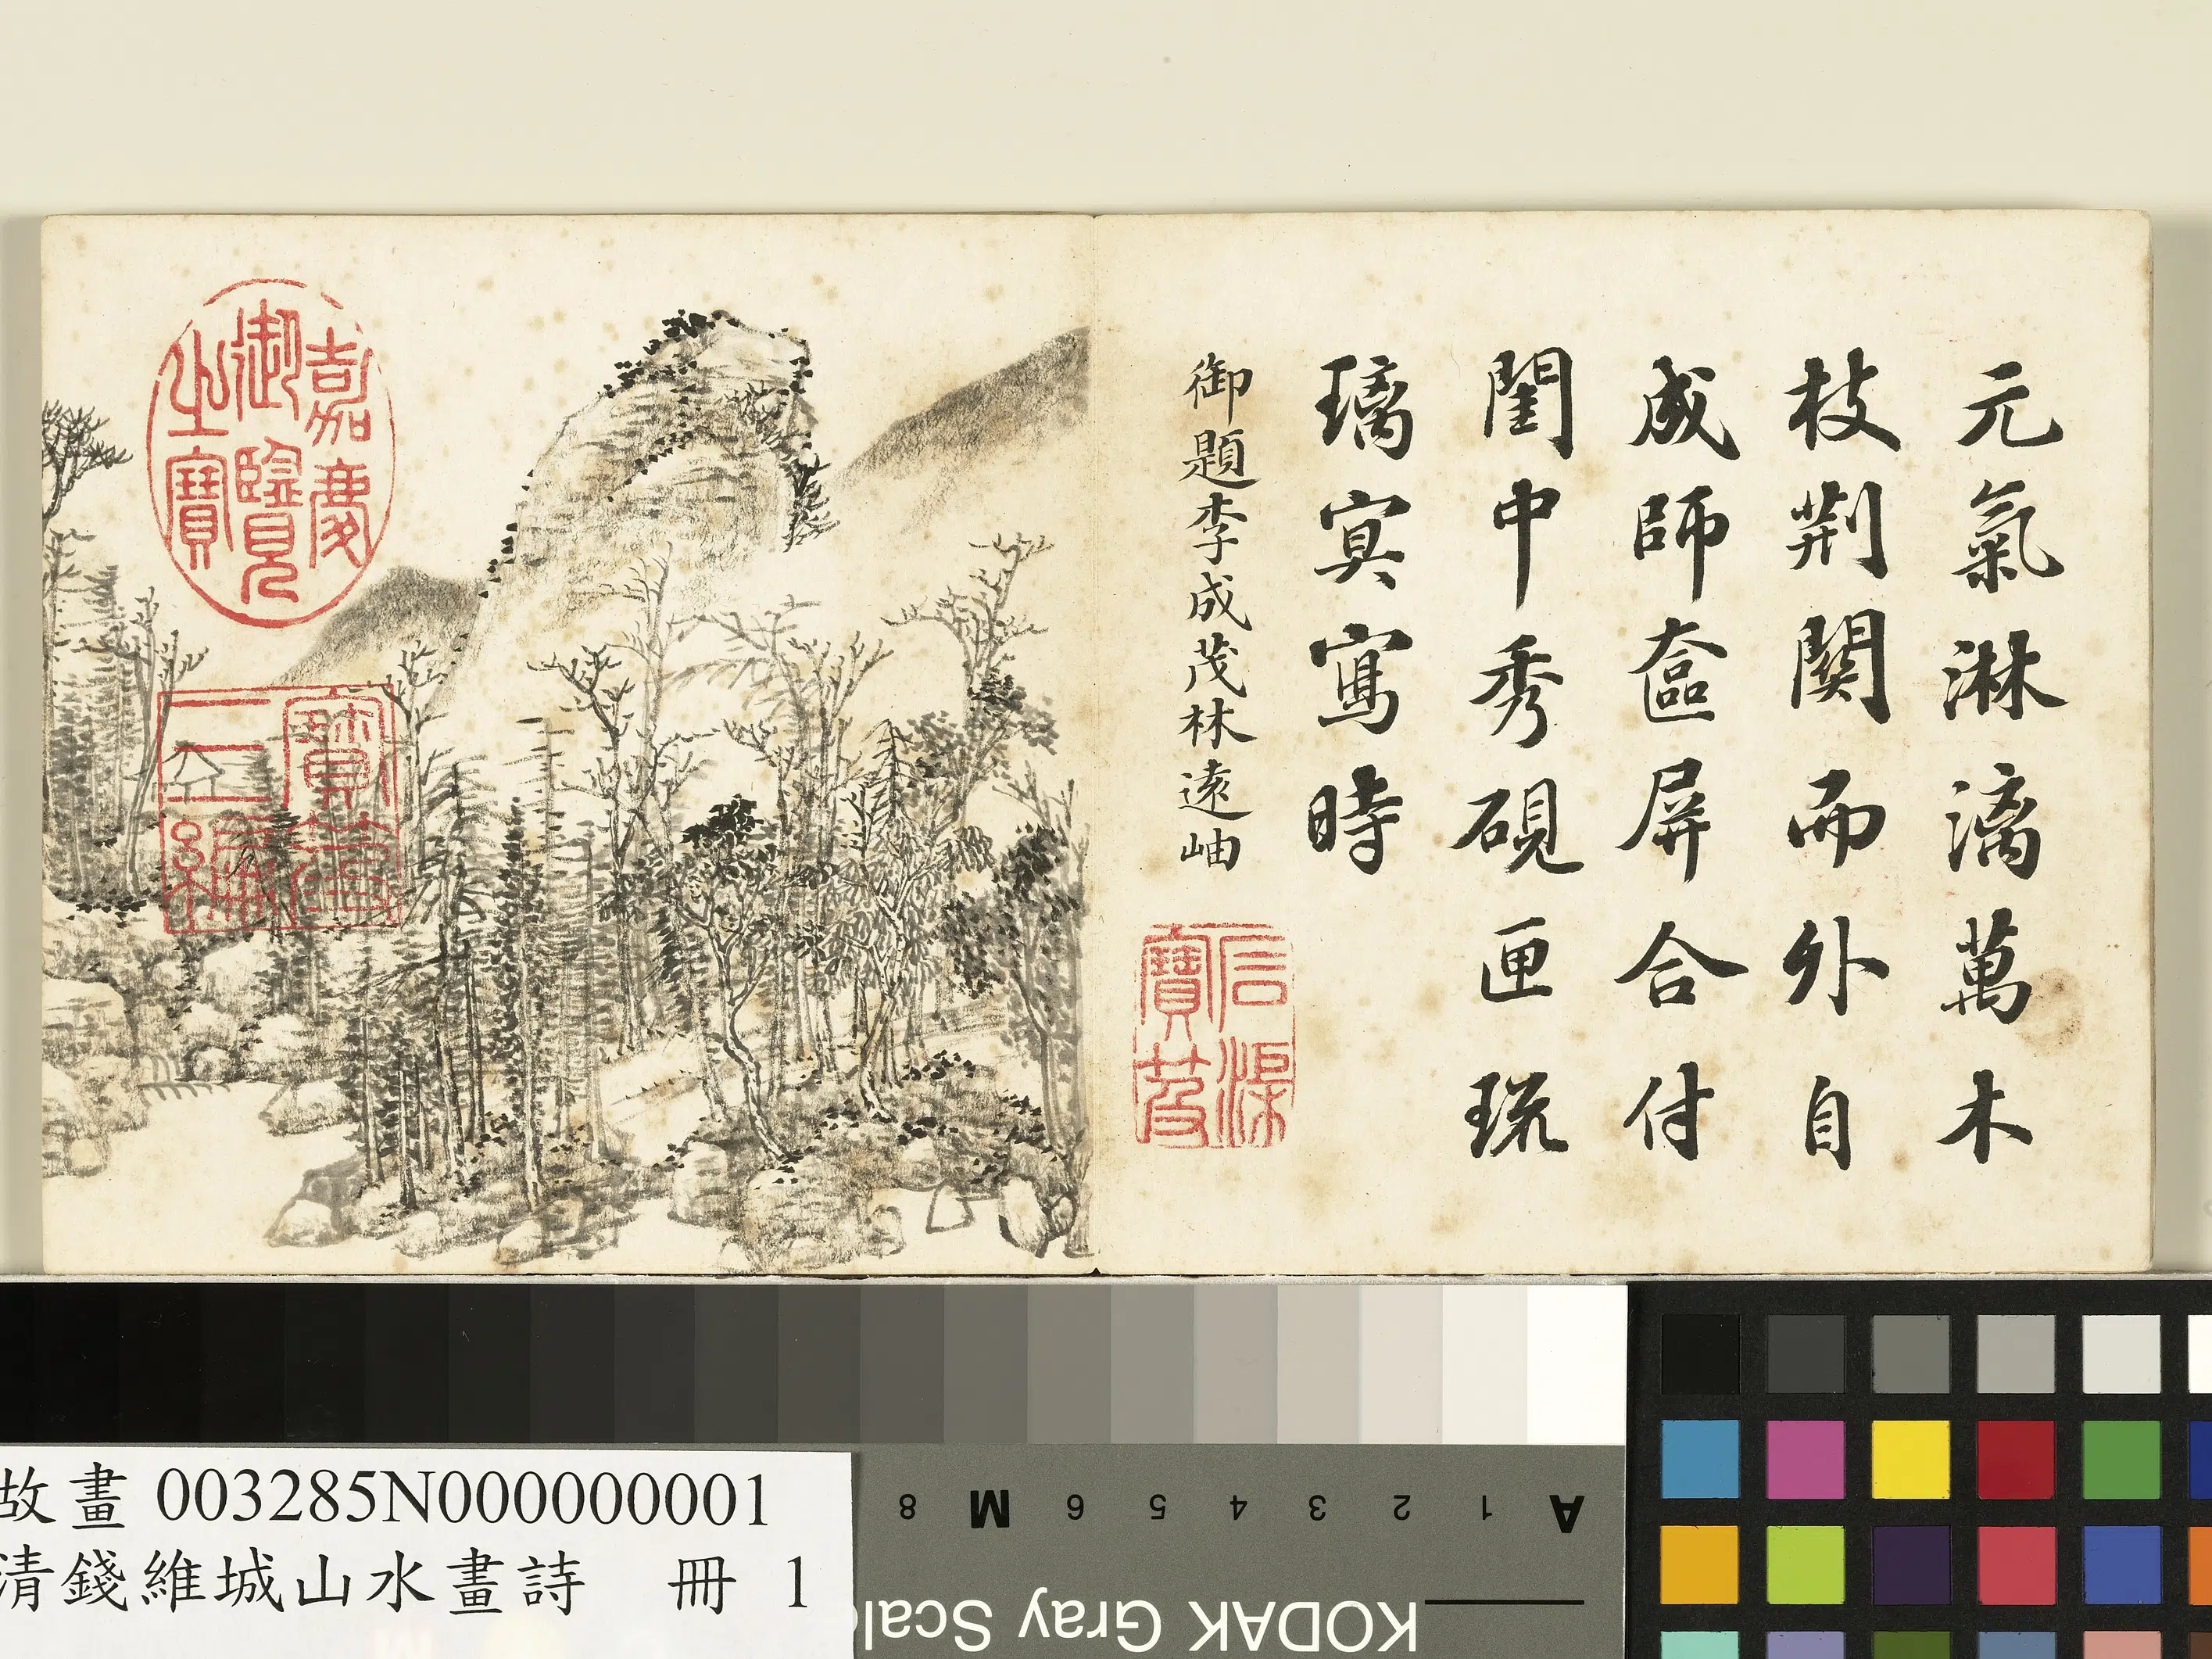 元氣淋漓萬木
枝荆関而外自
成師奩屏合付
閨中秀硯匣琉
璃㝠寫時
御題李成茂林遠岫
石渠寶笈
嘉慶御覽之寶
寶笈三編
故畫 003285N000000001
清錢維城山水畫詩 冊 1
A 1 2 3 4 5 6 M 8
KODAK Gray Scal